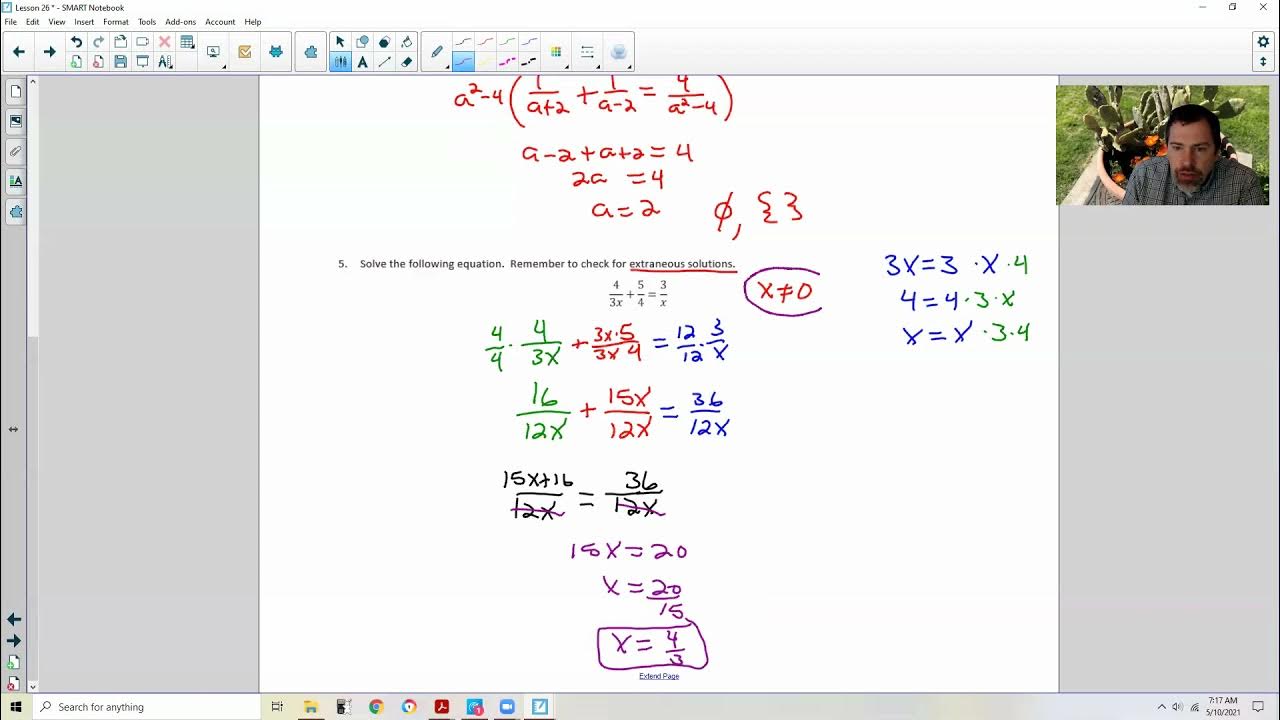 Lesson 26 * - SMART Notebook
File Edit View Insert Format Tools Add-ons Account Help
a²-4 ( 1/(a+2) + 1/(a-2) = 4/(a²-4) )
a-2+a+2=4
2a =4
a=2 ∅, { }
5. Solve the following equation. Remember to check for extraneous solutions.
4/3x + 5/4 = 3/x
x≠0
3x=3 ·x·4
4=4·3·x
x=x·3·4
4/4 · 4/3x + 3x·5/3x·4 = 12/12 · 3/x
16/12x + 15x/12x = 36/12x
15x+16/12x = 36/12x
15x=20
x=20/15
x=4/3
Extend Page
Search for anything
7:17 AM
5/10/2021